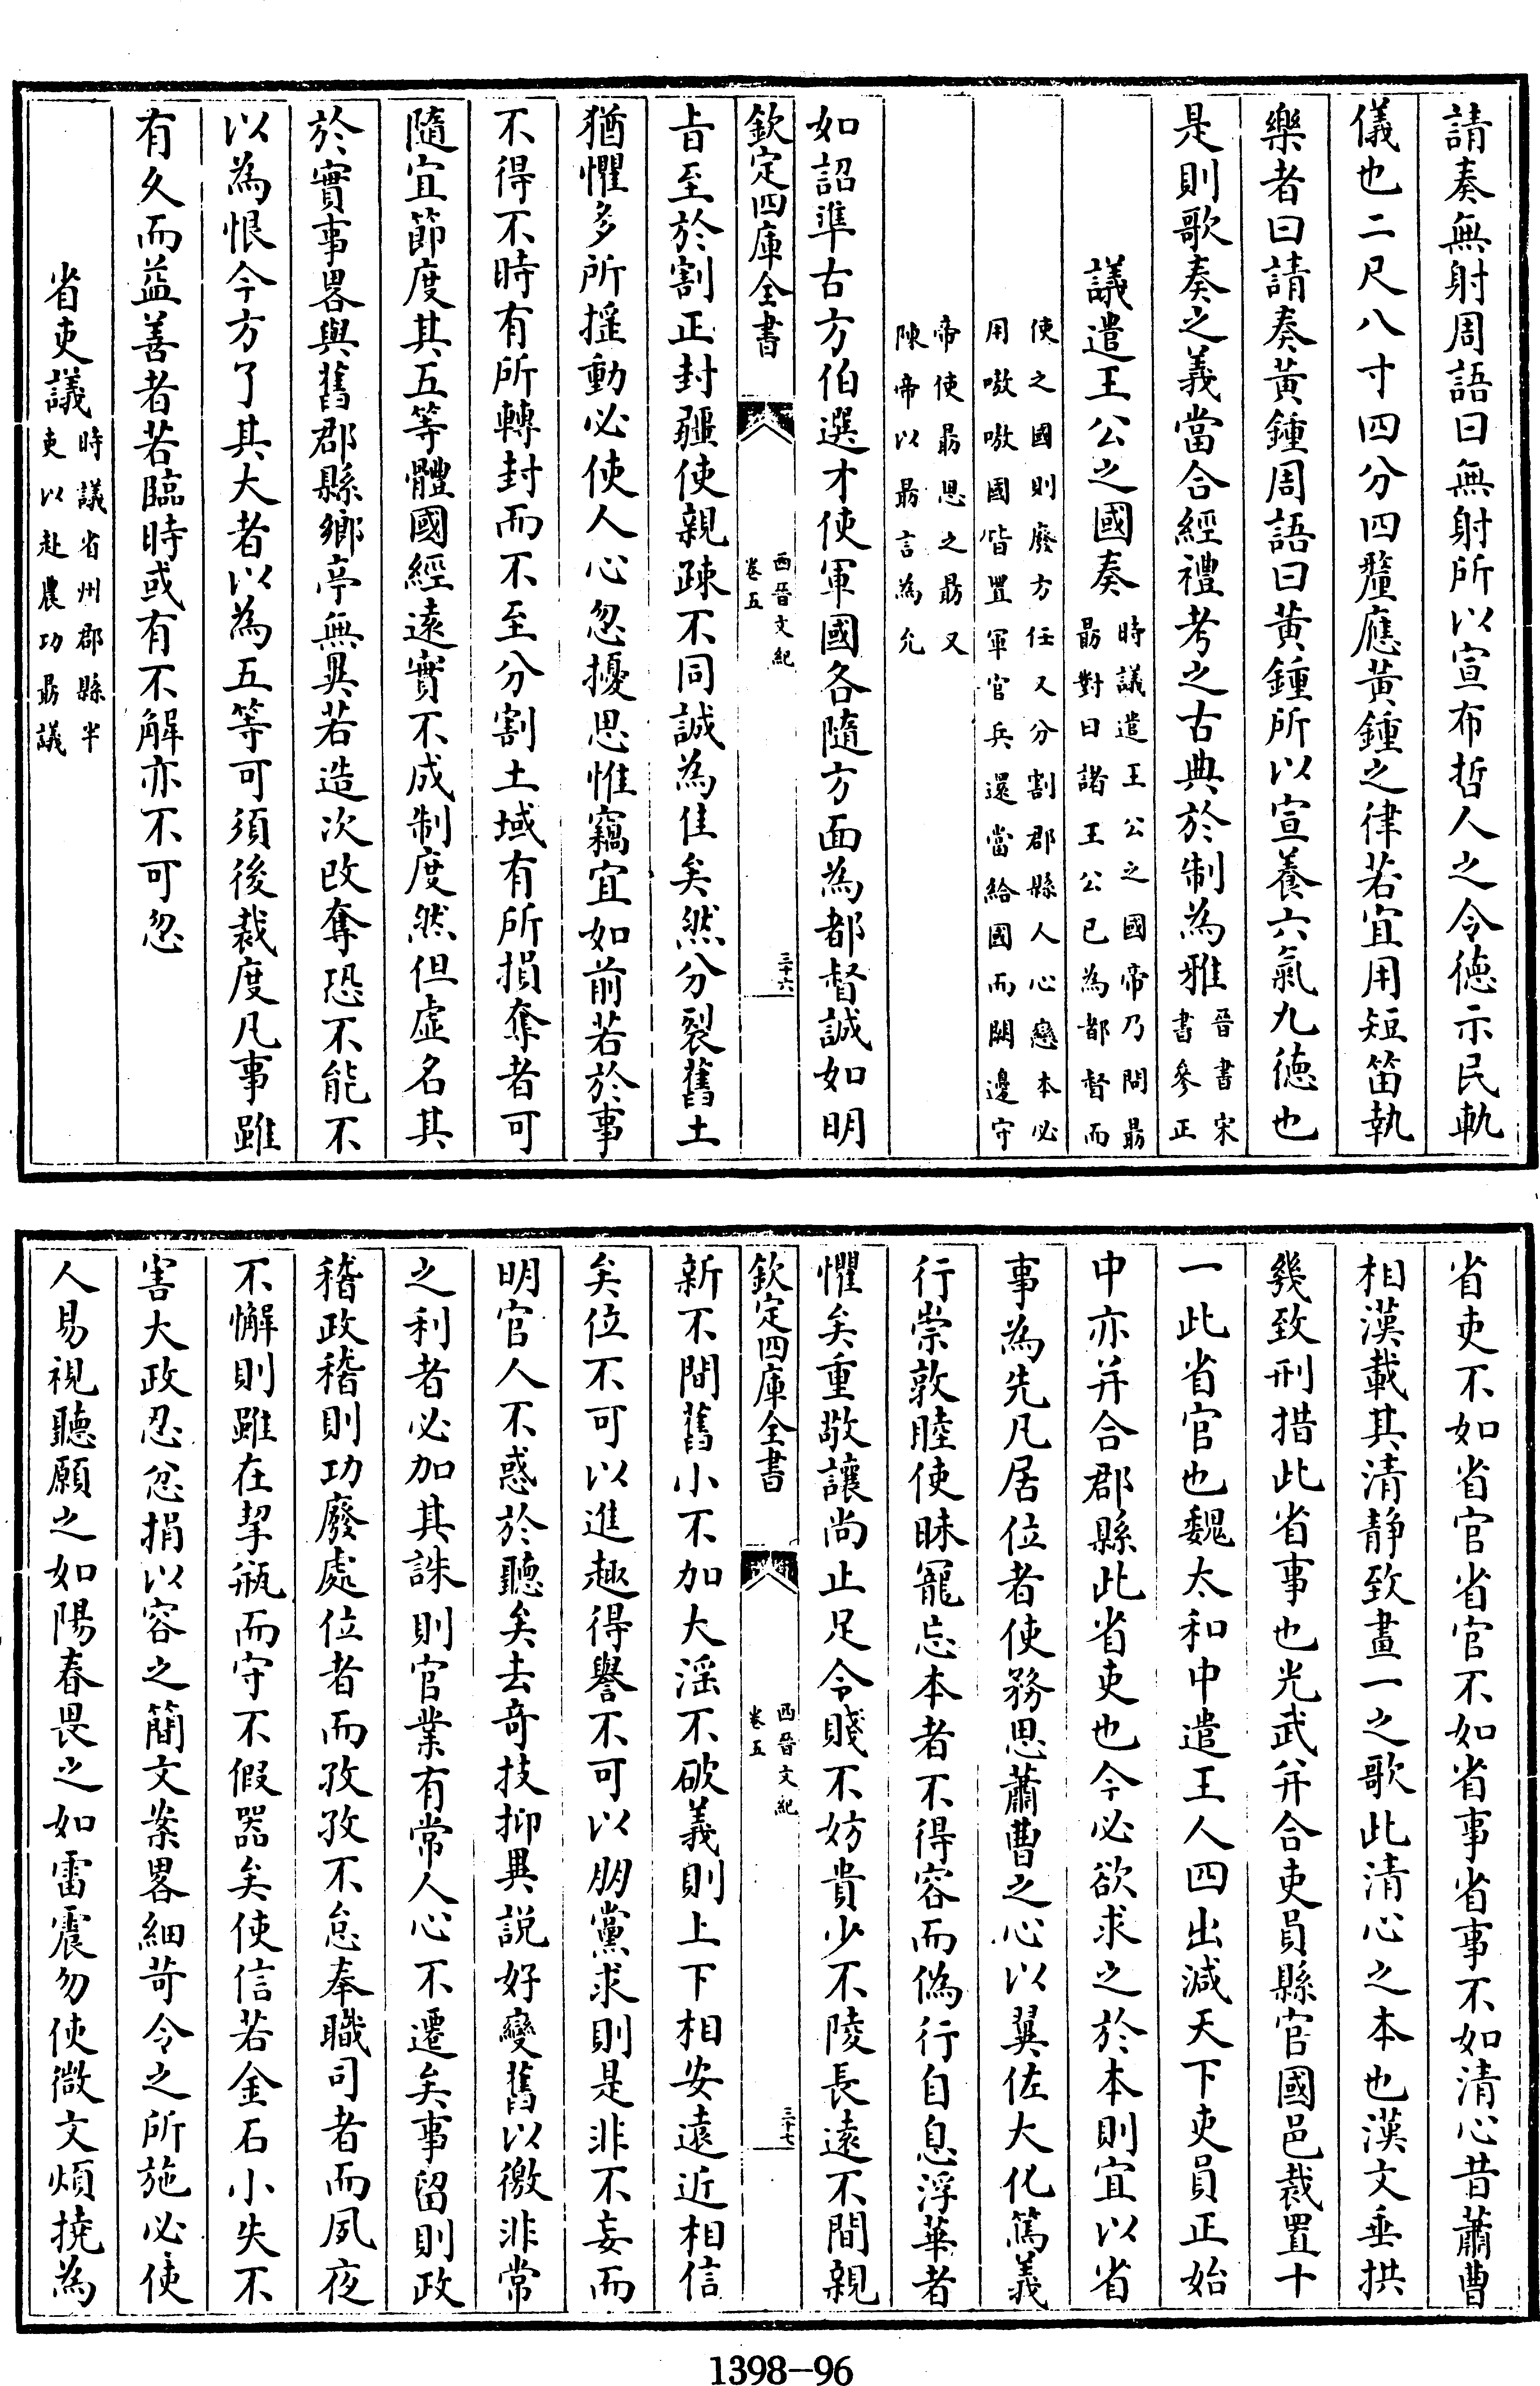 請奏無射周語曰無射所以宣布哲人之令徳示民軌
儀也二尺八寸四分四釐應黄鍾之律若宜用短笛執
樂者曰請奏黃鍾周語曰黄鍾所以宣養六氣九徳也
是則歌奏之義當合經禮考之古典於制為雅晉書宋
書參正
議遣王公之國奏時議遣王公之國帝乃問朂
朂對曰諸王公已為都督而
使之國則廢方任又分割郡縣人心戀本必
用嗷嗷國皆置軍官兵還當給國而闕邊守
帝使朂思之朂又
陳帝以朂言為允
如詔準古方伯選才使軍國各隨方面為都督誠如明
欽定四庫全書
西晉文紀
卷五
三十六
㫖至於割正封疆使親疎不同誠為佳矣然分裂舊土
猶懼多所揺動必使人心忽擾思惟竊宜如前若於事
不得不時有所轉封而不至分割土域有所損奪者可
隨宜節度其五等體國經遠實不成制度然但虚名其
於實事畧與舊郡縣鄉亭無異若造次改奪恐不能不
以為恨今方了其大者以為五等可須後裁度凡事雖
有久而益善者若臨時或有不解亦不可忽
省吏議時議省州郡縣半
吏以赴農功朂議
省吏不如省官省官不如省事省事不如清心昔蕭曹
相漢載其清静致畫一之歌此清心之本也漢文垂拱
幾致刑措此省事也光武并合吏員縣官國邑裁置十
一此省官也魏太和中遣王人四出減天下吏員正始
中亦并合郡縣此省吏也今必欲求之於本則宜以省
事為先凡居位者使務思蕭曹之心以翼佐大化篤義
行崇敦睦使昧寵忘本者不得容而偽行自息浮華者
懼矣重敬讓尚止足令賤不妨貴少不陵長遠不間親
欽定四庫全書
西晉文紀
卷五
三十七
新不間舊小不加大滛不破義則上下相安遠近相信
矣位不可以進趣得譽不可以朋黨求則是非不妄而
明官人不惑於聽矣去奇技抑異説好變舊以徼非常
之利者必加其誅則官業有常人心不遷矣事留則政
稽政稽則功廢處位者而孜孜不怠奉職司者而夙夜
不懈則雖在挈瓶而守不假器矣使信若金石小失不
害大政忍忿捐以容之簡文案畧細苛令之所施必使
人易視聽願之如陽春畏之如雷震勿使微文煩撓為
1398-96